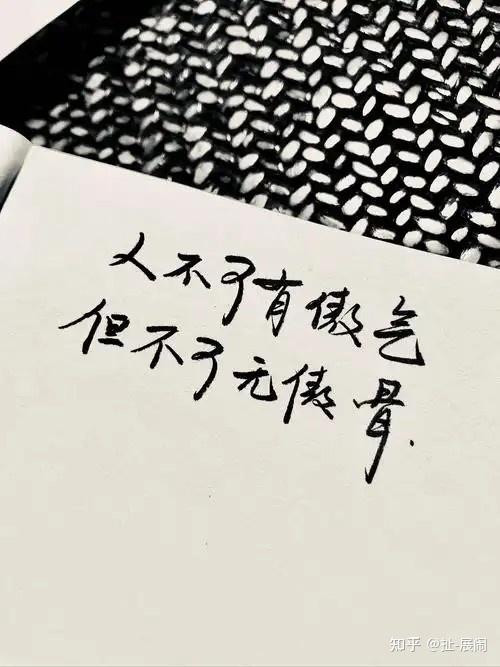 人不可有傲气
但不可无傲骨.
知乎 @扯-展闹